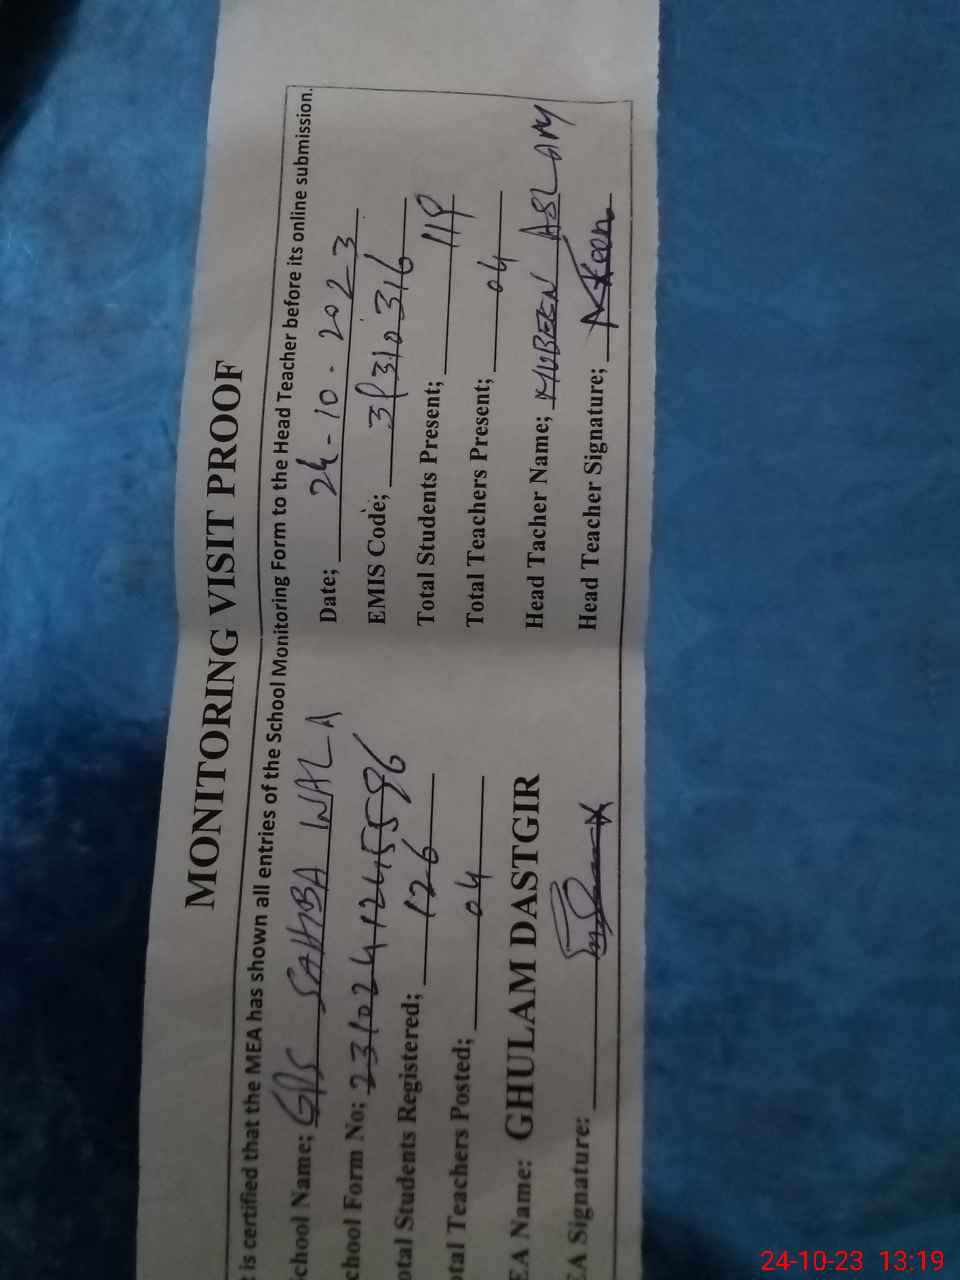 MONITORING VISIT PROOF
t is certified that the MEA has shown all entries of the School Monitoring Form to the Head Teacher before its online submission.
chool Name; GPS SAHIBA WALA Date; 24-10-2023
chool Form No; 2310241245596 EMIS Code; 31310316
otal Students Registered; 126 Total Students Present; 119
otal Teachers Posted; 04 Total Teachers Present; 04
EA Name: GHULAM DASTGIR Head Tacher Name; MUBEEN ASLAM
EA Signature: Head Teacher Signature;
24-10-23 13:19